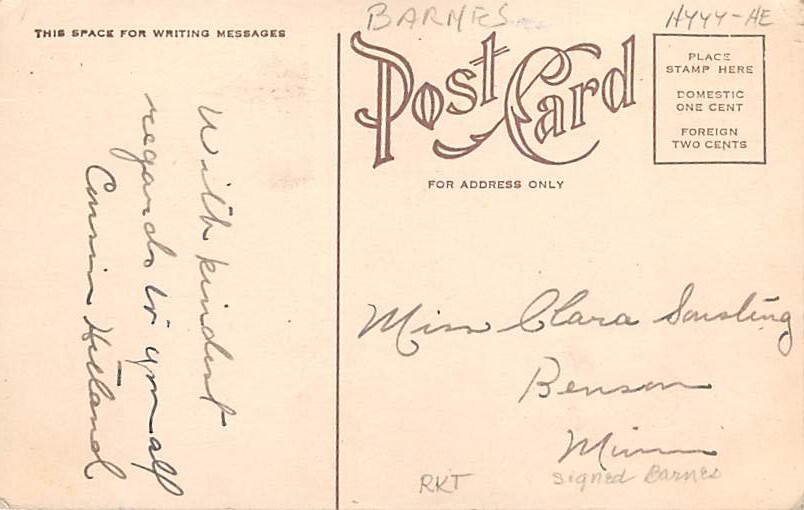 THIS SPACE FOR WRITING MESSAGES
With kindest
regards to you all
Cousin
BARNES
HYYY-HE
Post Card
FOR ADDRESS ONLY
PLACE
STAMP HERE
DOMESTIC
ONE CENT
FOREIGN
TWO CENTS
Miss Clara
Benson
Minn
RKT
signed Barnes